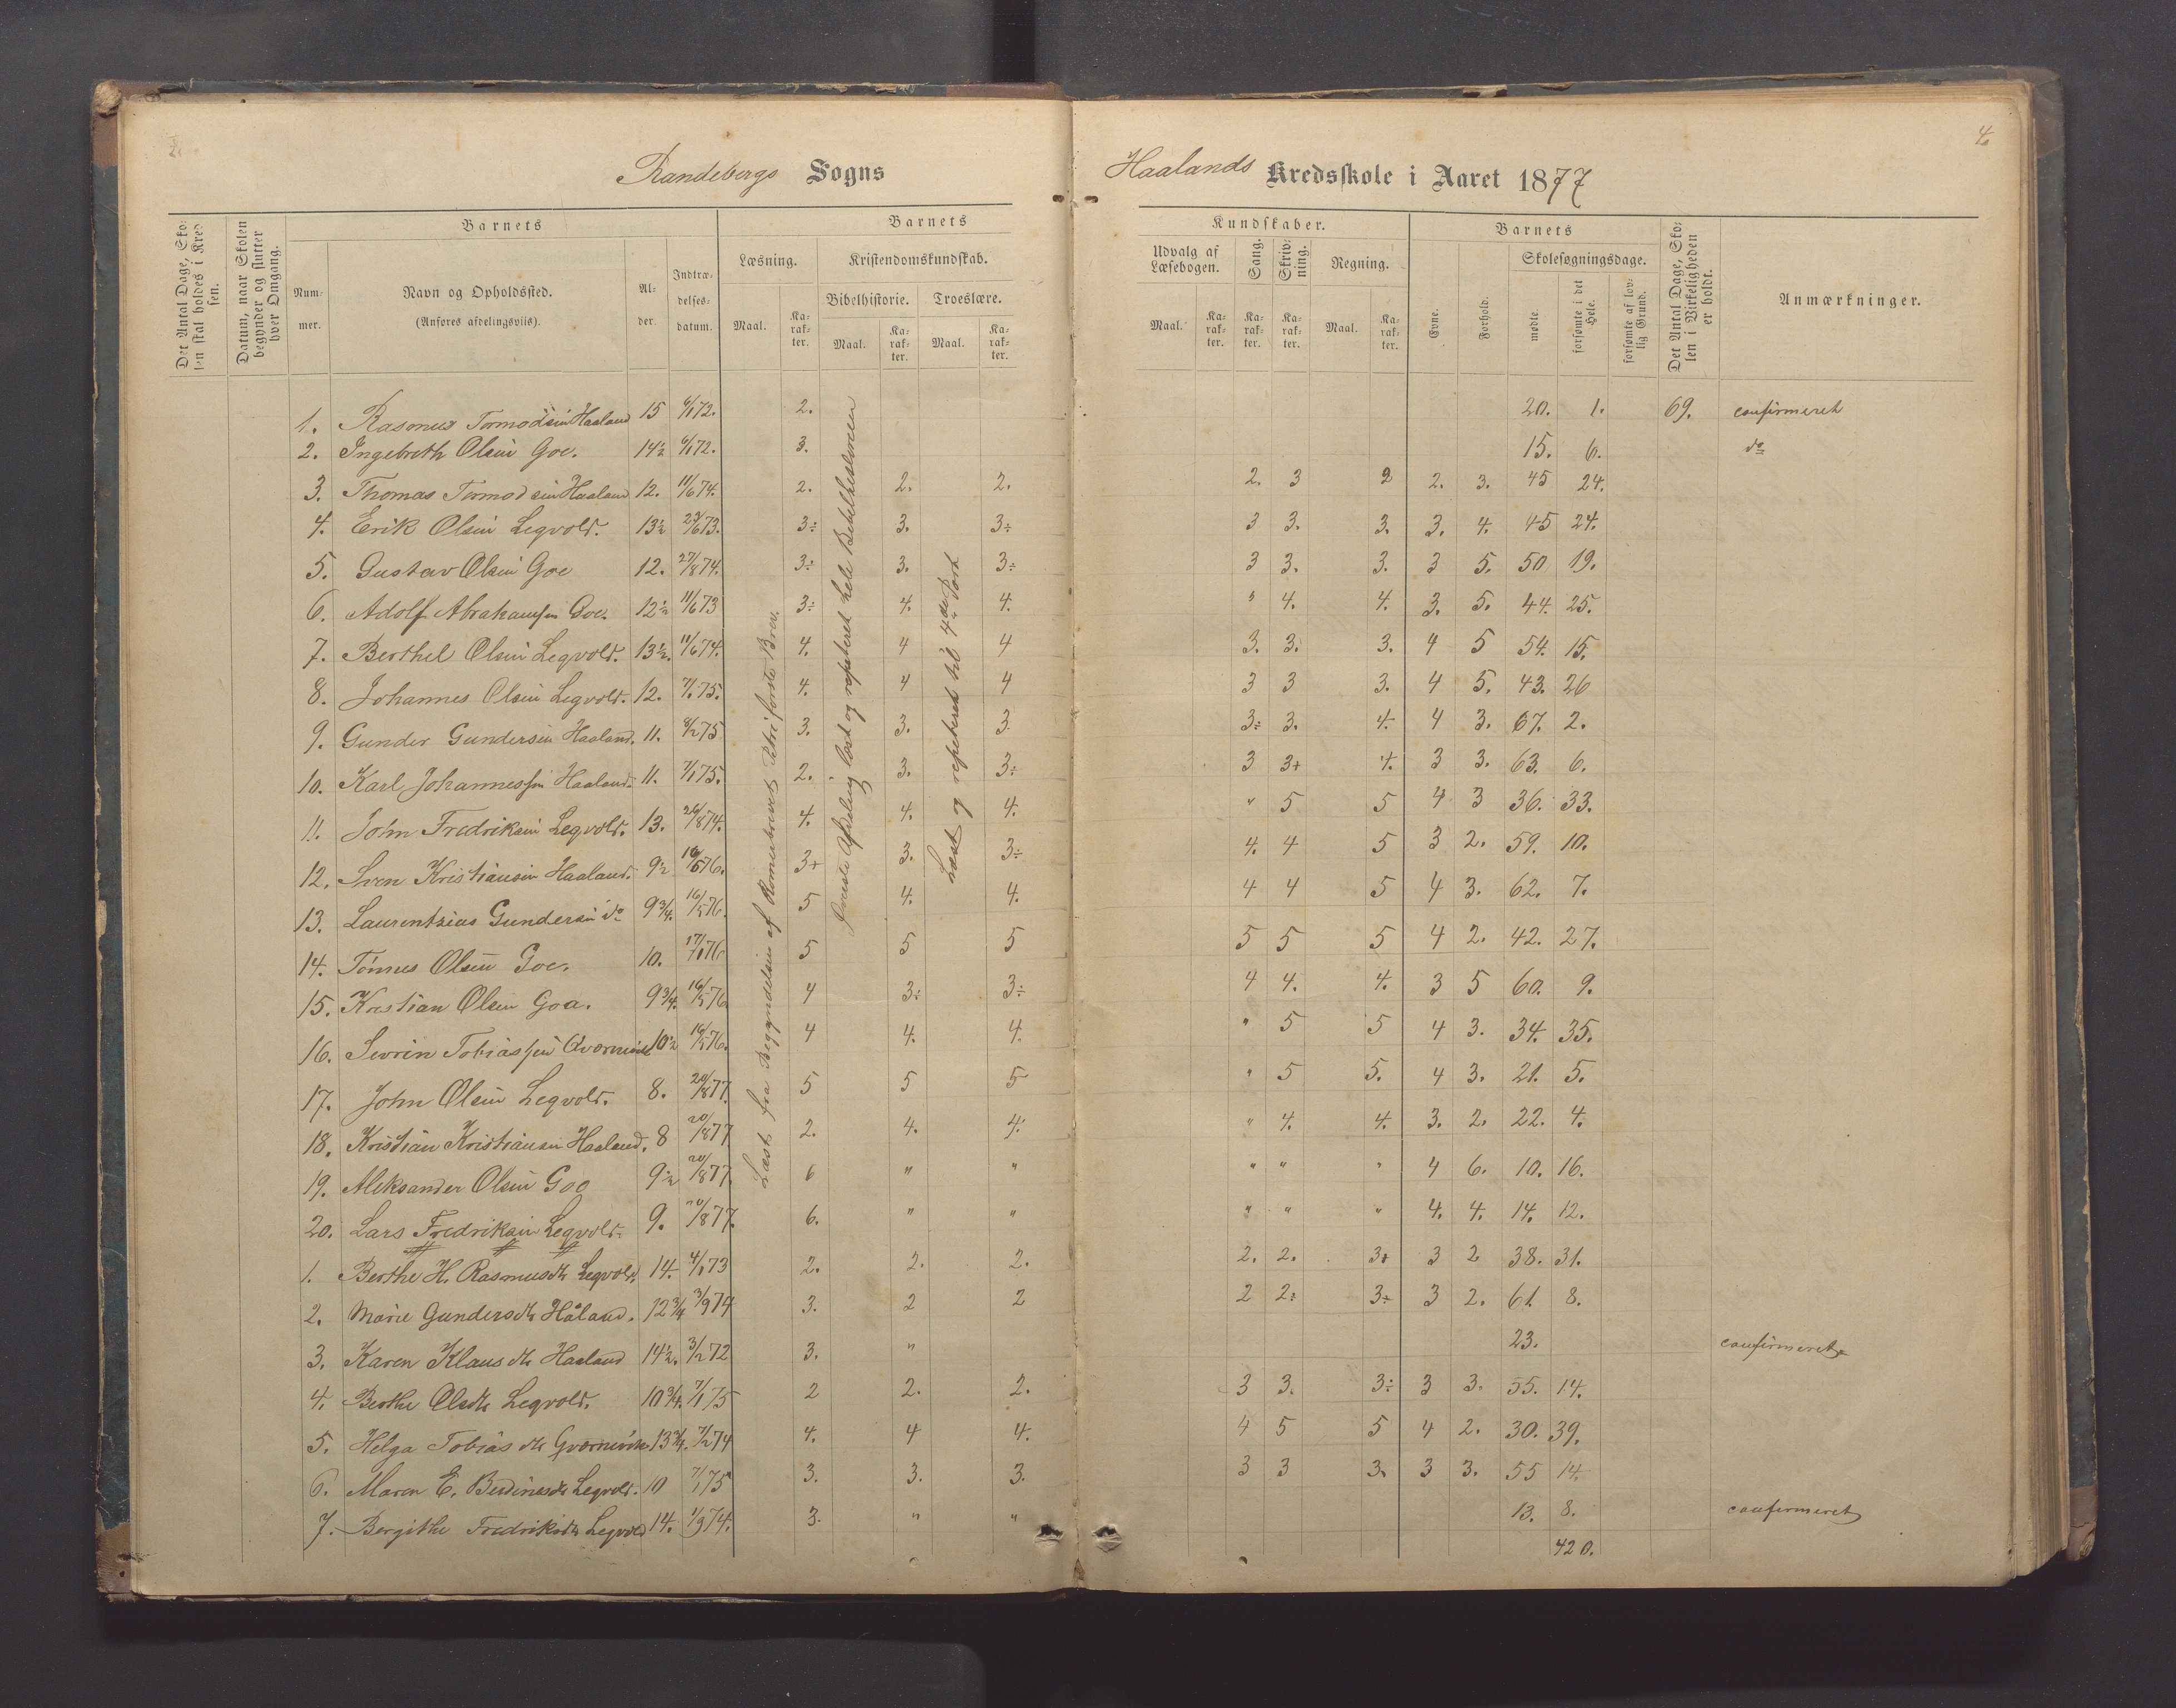 4.
Randebergs Sogns Haalands Kredsskole i Aaret 1877
Det Antal Dage, Skolen skal holdes i Kredsen.
Datum, naar Skolen begynder og slutter hver Omgang.
Barnets
Nummer.
Navn og Opholdssted.
(Anføres afdelingsviis).
Alder.
Indtrædelsesdatum.
Barnets Kundskaber.
Læsning. Maal. Karakter.
Kristendomskundskab.
Bibelhistorie. Maal. Karakter.
Troeslære. Maal. Karakter.
Udvalg af Læsebogen. Maal. Karakter.
Sang. Karakter.
Skrivning. Karakter.
Regning. Maal. Karakter.
Barnets
Evne.
Forhold.
Skolesøgningsdage.
mødte.
forsømte i det Hele.
forsømte af lovlig Grund.
Det Antal Dage, Skolen i Virkeligheden er holdt.
Anmærkninger.
1. Rasmus Tormodsen Haaland 15 6/1 72. 2. 20. 1. 69. confirmeret
2. Ingebreth Olsen Goe. 14½ 6/1 72. 3. 15. 6. do
3. Thomas Tormodsen Haaland 12. 11/6 74. 2. 2. 2. 2. 3 2 2. 3. 45 24.
4. Erik Olsen Legvold. 13½ 23/6 73. 3÷ 3. 3÷ 3 3. 3. 3. 4. 45 24.
5. Gustav Olsen Goe 12. 27/8 74. 3÷ 3. 3÷ 3 3. 3. 3 5. 50 19.
6. Adolf Abrahamsen Goe. 12½ 11/6 73 3÷ 4. 4. " 4. 4. 3. 5. 44. 25.
7. Berthel Olsen Legvold. 13½. 11/6 74. 4. 4 4 3. 3. 3. 4 5 54. 15.
8. Johannes Olsen Legvold. 12. 7/1 75. 4. 4 4 3 3 3. 4 5. 43. 26
9. Gunder Gundersen Haaland. 11. 8/2 75 3. 3. 3. 3÷ 3. 4. 4 3. 67. 2.
10. Karl Johannessen Haaland. 11. 7/1 75. 2. 3. 3÷ 3 3+ 4. 3 3. 63. 6.
11. John Fredriksen Legvold. 13. 26/8 74. 4. 4. 4. " 5 5 4 3 36. 33.
12. Sven Kristiansen Haaland. 9½ 16/5 76. 3+ 3. 3÷ 4. 4 5 3 2. 59. 10.
13. Laurentzius Gundersen do 9¾. 16/5 76. 5 4. 4. 4 4 5 4 3. 62. 7.
14. Tönnes Olsen Goe. 10. 17/1 76 5 5 5 5 5 5 4 2. 42. 27.
15. Kristian Olsen Goa. 9¾. 16/5 76 4 3÷ 3÷ 4 4. 4. 3 5 60. 9.
16. Sevrin Tobiassen Qværnevik 10½ 16/5 76. 4 4. 4. " 5 5 4 3. 34. 35.
17. John Olsen Legvold. 8. 20/8 77. 5 5 5 " 5 5. 4 3. 21. 5.
18. Kristian Kristiansen Haaland. 8 20/8 77 2. 4. 4. " 4. 4. 3. 2. 22. 4.
19. Aleksander Olsen Goe 9½ 20/8 77. 6 " " " " " 4 6. 10. 16.
20. Lars Fredriksen Legvold. 9. 20/8 77. 6. " " " " " 4. 4. 14. 12.
1. Berthe H. Rasmusdtr Legvold. 14. 4/1 73 2. 2. 2. 2. 2. 3+ 3 2 38. 31.
2. Marie Gundersdtr Håland. 12¾ 3/9 74 3. 2 2 2 2÷ 3÷ 3 2. 61. 8.
3. Karen Klausdtr Haaland 14½. 3/2 72 3. " 23. confirmeret
4. Berthe Olsdtr Legvold. 10¾. 7/1 75 2 2. 2. 3 3. 3÷ 3 3. 55. 14.
5. Helga Tobiasdtr Qværnevik 13¾. 7/2 74 4. 4 4. 4 5 5 4 2. 30. 39.
6. Maren E. Berdinesdtr Legvold. 10 7/1 75 3. 3. 3. 3 3 3. 3 3. 55 14.
7. Bergithe Fredriksdtr Legvold 14. 1/9 74. 3. " " 13. 8. confirmeret
420.
Læst fra Begyndelsen af Romerbrevet Petri første Brev.
Første Afdeling læst og repeteret hele Bibelhistorien
Læst og repeteret til 4de Part